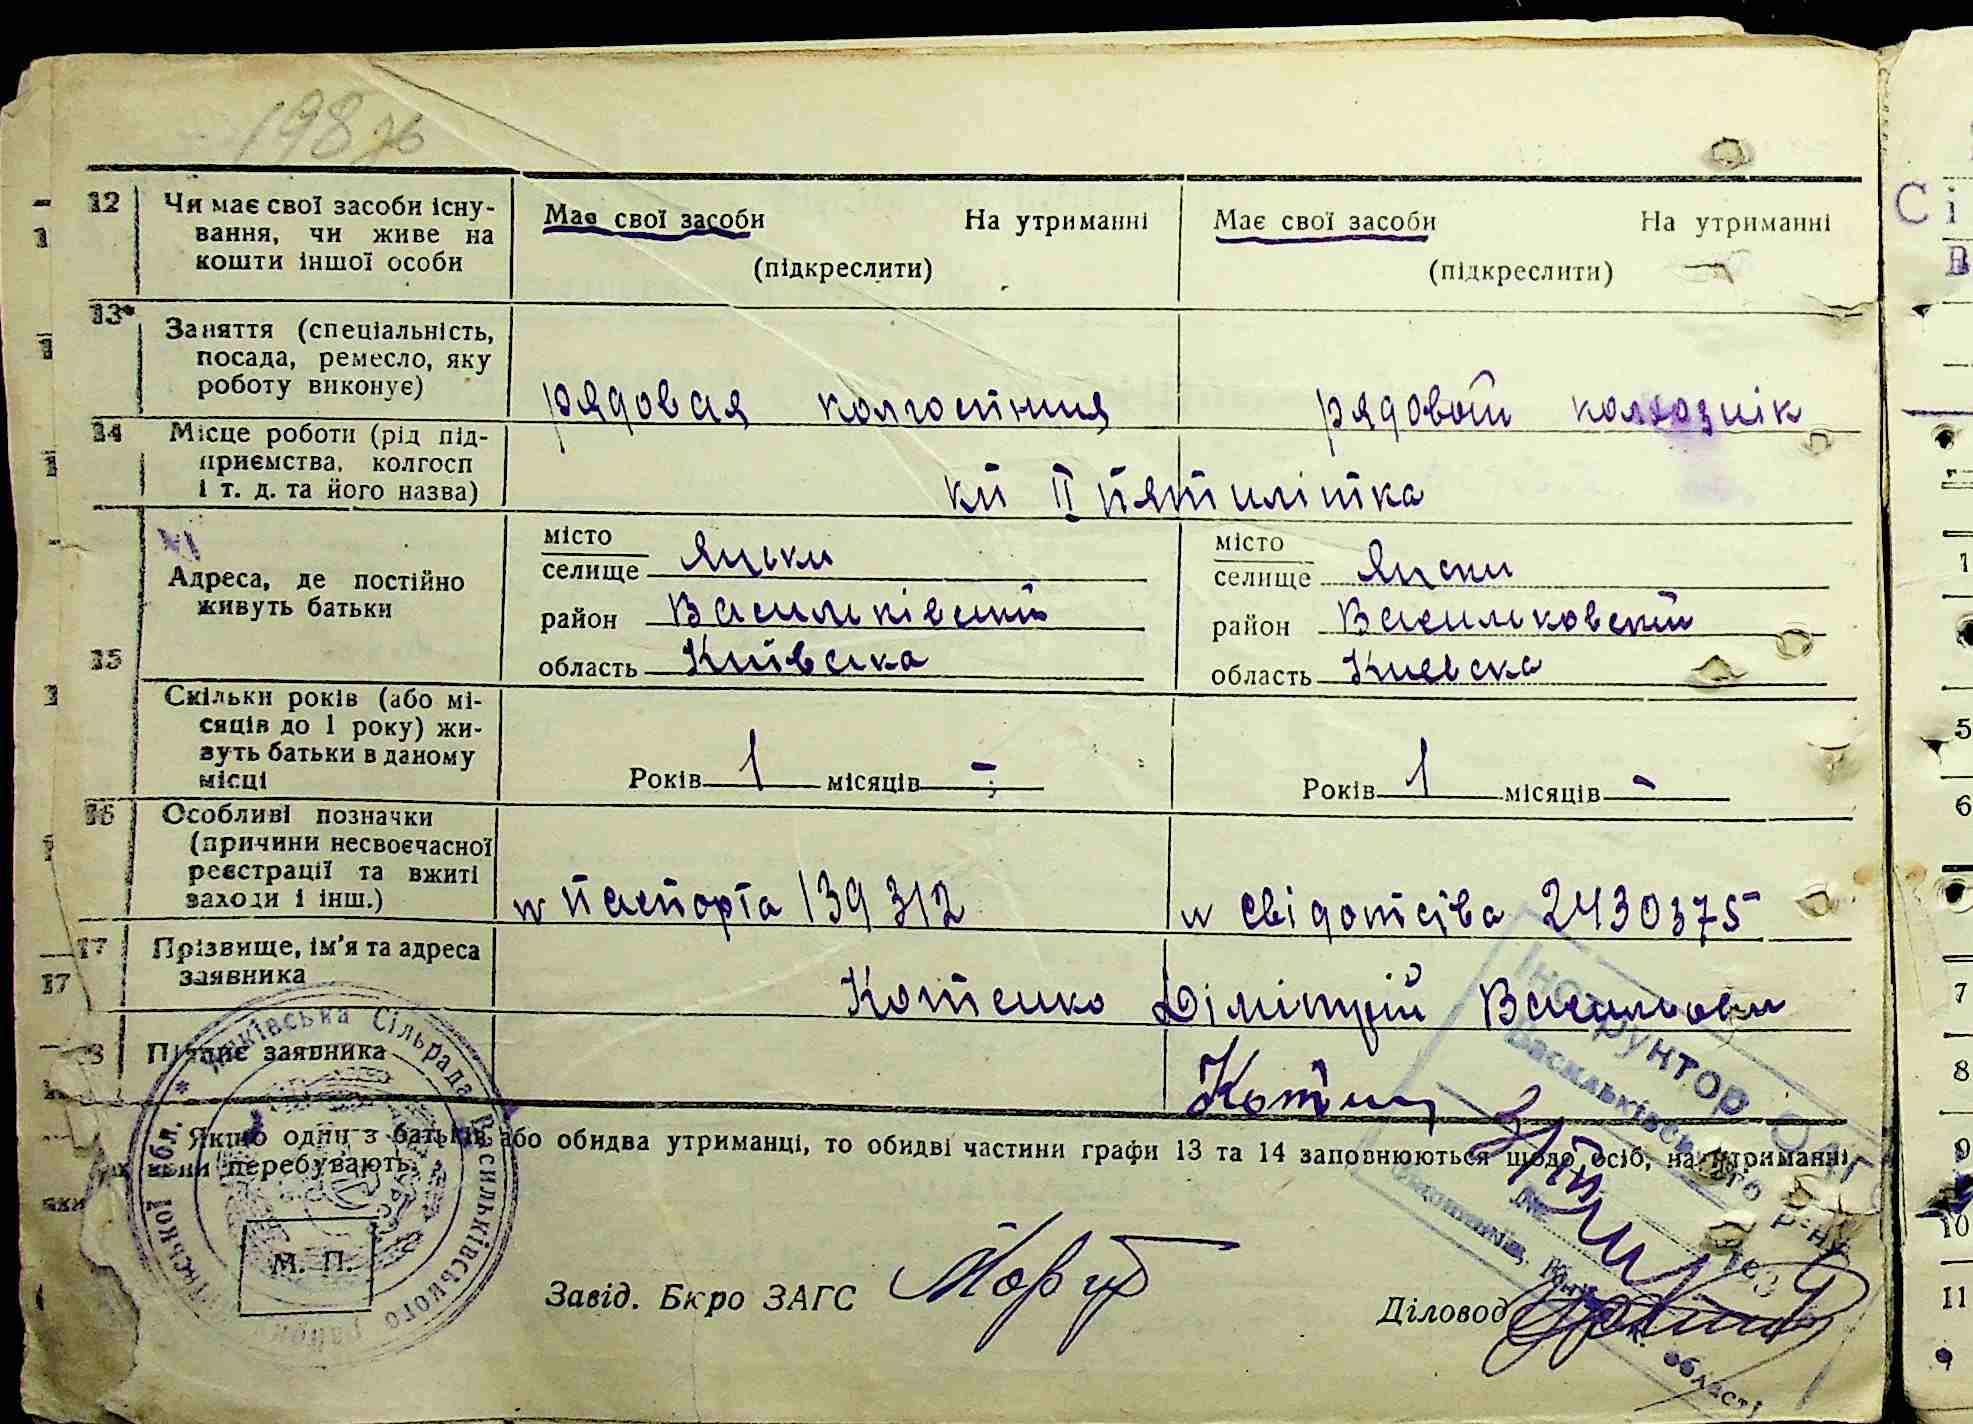 198 зв
12 Чи має свої засоби існу-
вання, чи живе на
кошти іншої особи
Має свої засоби На утриманні
(підкреслити)
Має свої засоби На утриманні
(підкреслити)
13 Заняття (спеціальність,
посада, ремесло, яку
роботу виконує)
рядовая колгоспниця
рядовой колхознік
14 Місце роботи (рід під-
приємства, колгосп
і т. д. та його назва)
кп ІІ пятилітка
15 Адреса, де постійно
живуть батьки
місто
селище Яцьки
район Васильківский
область Київська
місто
селище Яцки
район Васильковский
область Киевска
Скільки років (або мі-
сяців до 1 року) жи-
вуть батьки в даному
місці
Років 1 місяців -
Років 1 місяців -
16 Особливі позначки
(причини несвоєчасної
реєстрації та вжиті
заходи і інш.)
№ паспорта 139312
№ свідотства 2430375
17 Прізвище, ім'я та адреса
заявника
Котенко Дімітрій Васильови
18 Підпис заявника
Якщо один з батьків або обидва утриманці, то обидві частини графи 13 та 14 заповнюються щодо осіб, на утриманні
яких вони перебувають.
М. П.
Завід. Бюро ЗАГС
Діловод
Яцківська Сільрада Васильківського району Київської обл.
Інструктор
Васильківського р-ну
області
17
Сі
В
1
5
6
7
8
9
10
11